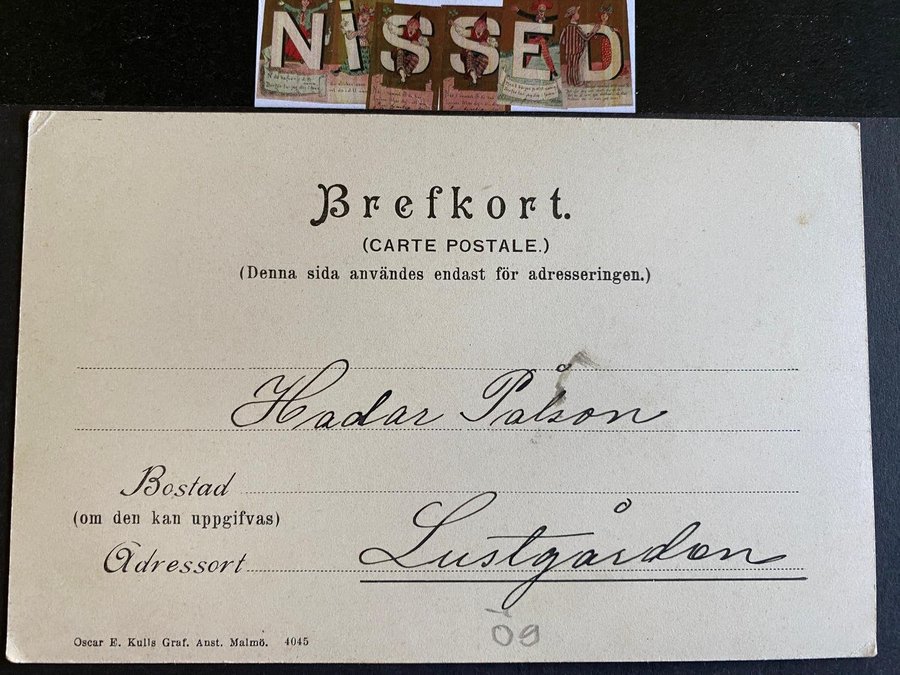 NISSED
Brefkort.
(CARTE POSTALE.)
(Denna sida användes endast för adresseringen.)
Hadar Pålson
Bostad
(om den kan uppgifvas)
Adressort Lustgården
09
Oscar E. Kulls Graf. Anst. Malmö. 4045